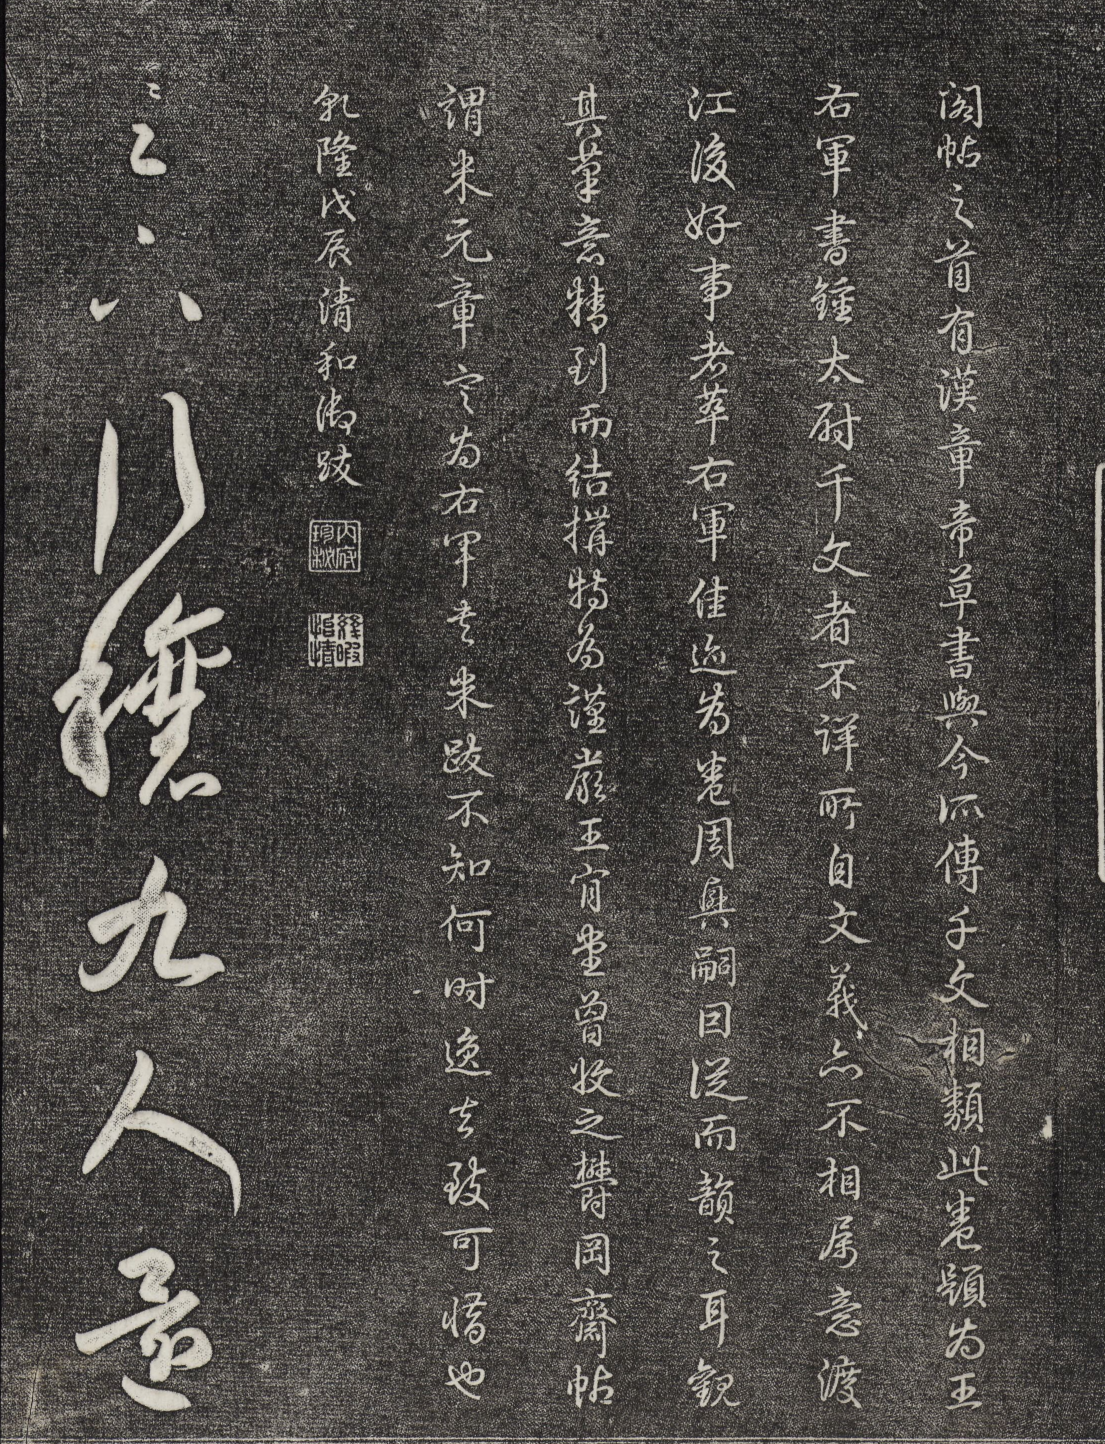 閣帖之首有漢章帝草書與今所傳千文相類此卷題為王
右軍書鍾太尉千文者不詳所自文義亦不相属意渡
江後好事者萃右軍佳迹為卷周興嗣因從而韻之耳觀
其筆意精到而結搆特為謹嚴王肯堂曾收之欝岡齋帖
謂米元章定為右軍書米跋不知何时逸去致可惜也
乾隆戊辰清和御跋
内府珍秘
幾暇怡情
九人還